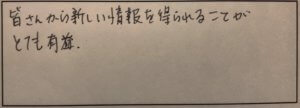 皆さんから新しい情報を得られることが
とても有益.